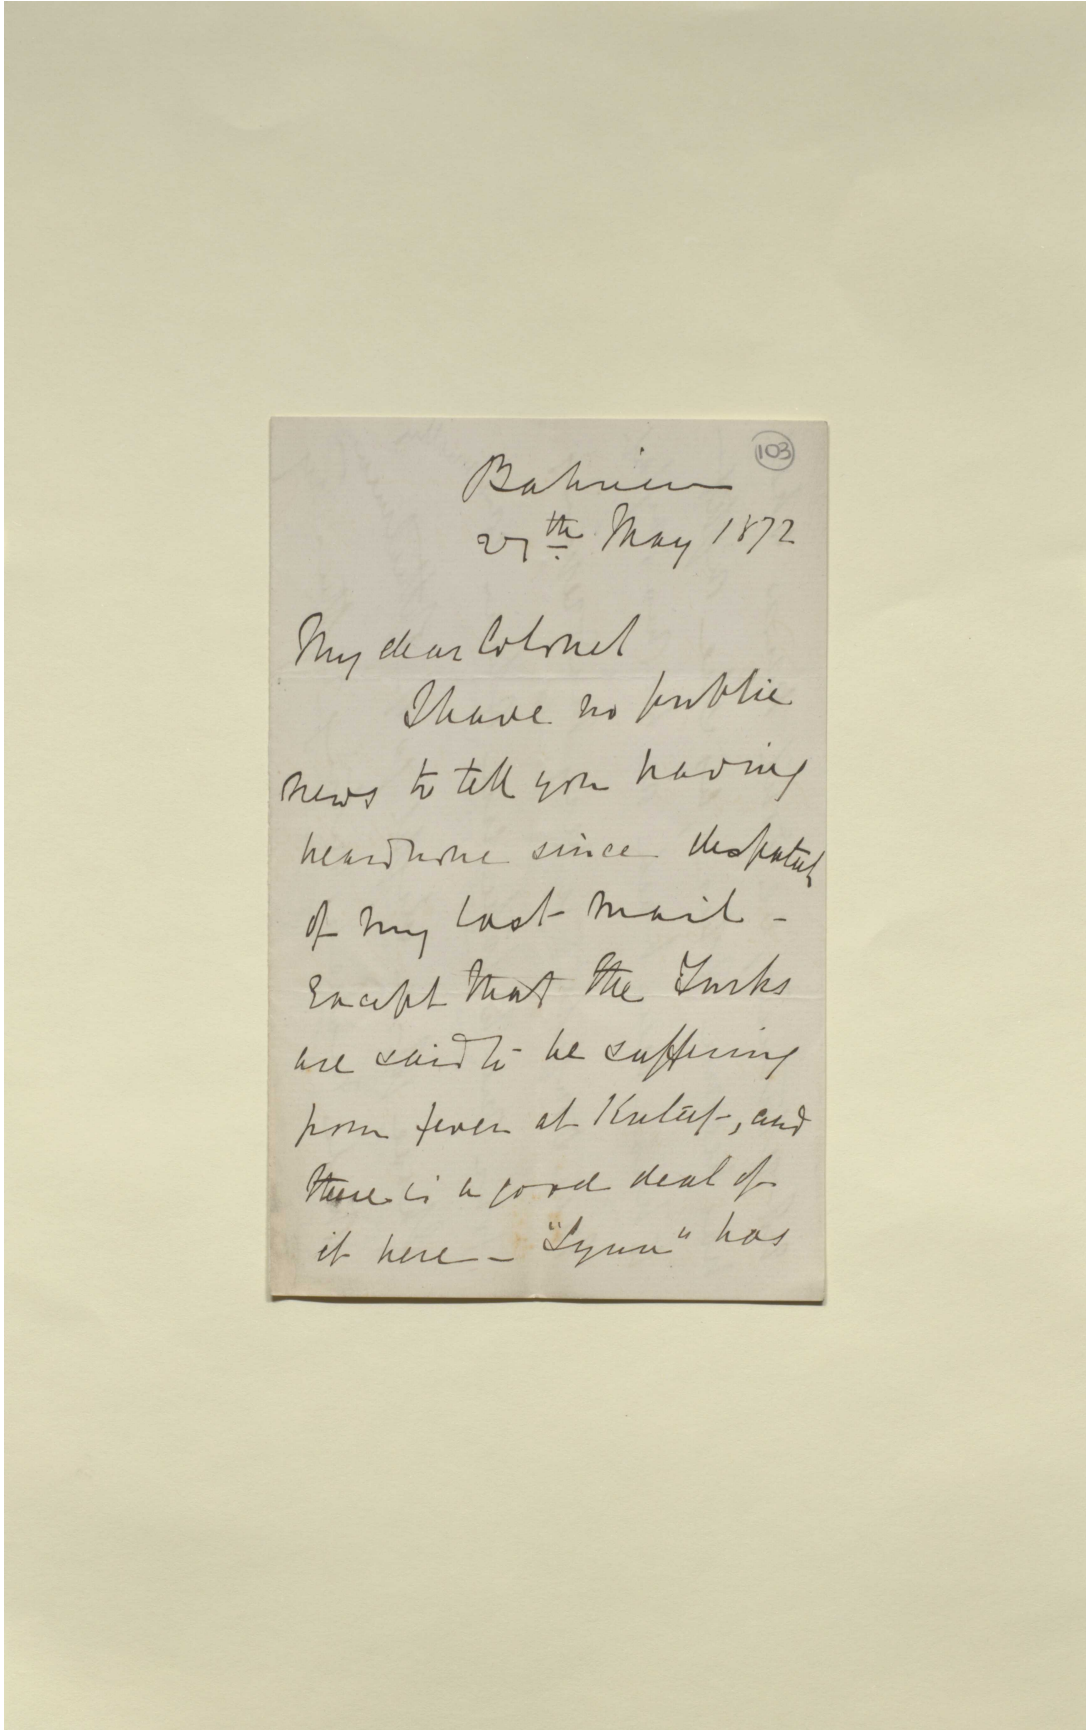 103
Bahrein
27th May 1872
My dear Colonel
I have no public
news to tell you having
heard none since despatch
of my last mail -
Except that the Turks
are said to be suffering
from fever at Kateef, and
there is a good deal of
it here - "Lynx" has